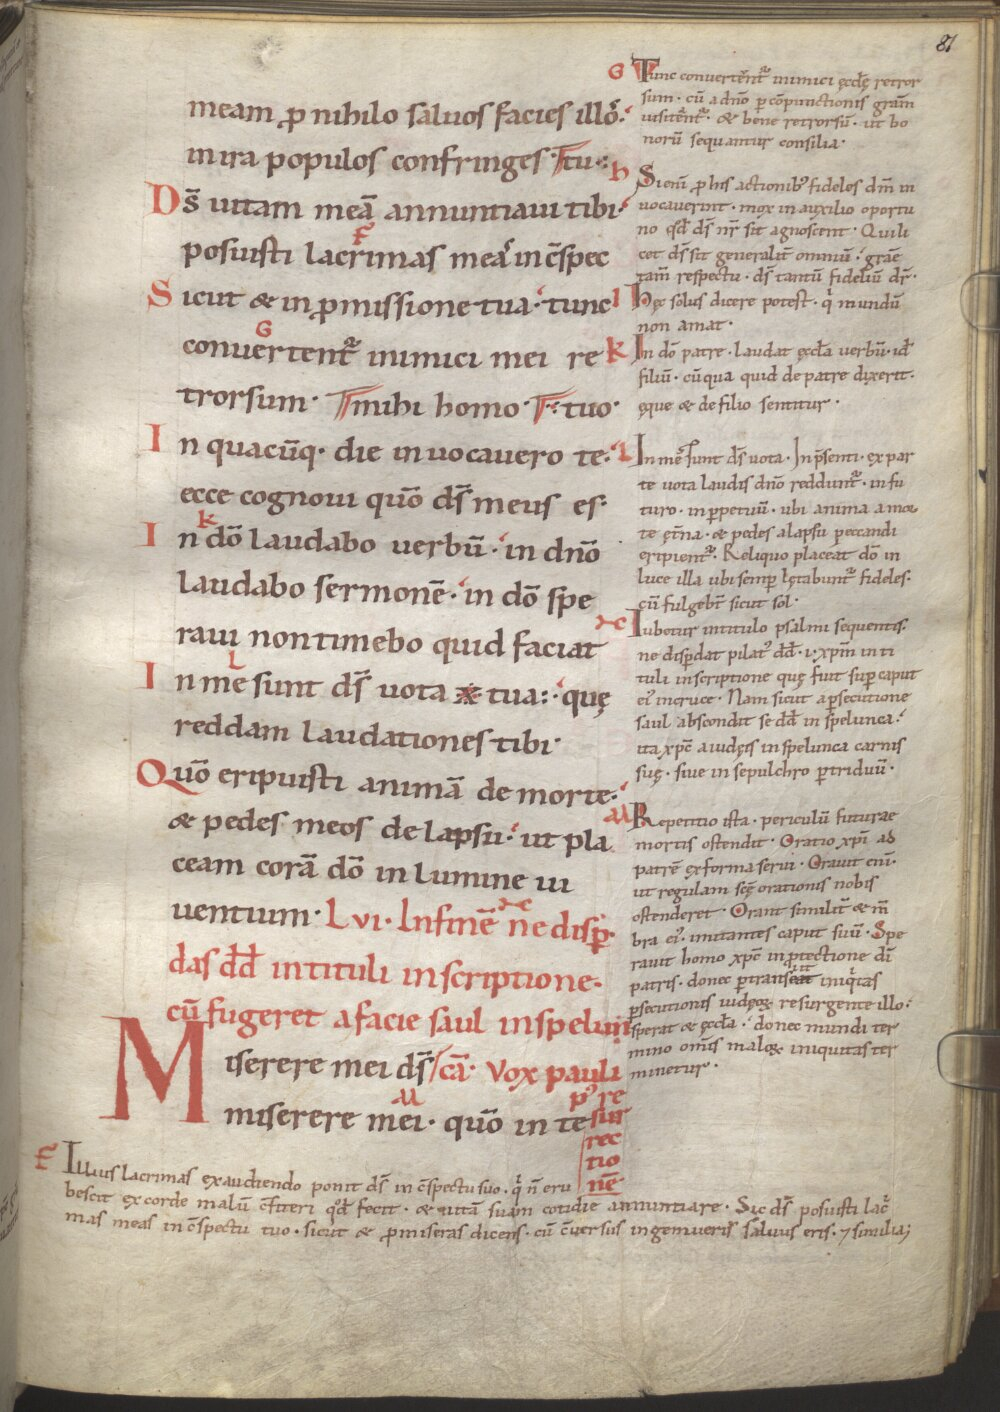 81
meam ꝓ nihilo saluos facies illoꝭ.
in ira populos confringes. Tu:
Ds̄ uitam meā annuntiaui tibi
posuisti lacrimas meaꝭ in c̄spec
Sicut & in ꝓmissione tua. tunc
conuertentᷣ inimici mei re
trorsum. T mihi homo. T: tuo.
In quacūq. die inuocauero te.
ecce cognoui quō ds̄ meus es.
In dō laudabo uerbū. in dnō
laudabo sermonē. in dō spe
raui non timebo quid faciat
In mē sunt ds̄ uota tua: quę
reddam laudationes tibi.
Quō eripuisti animā de morte.
& pedes meos de lapsu. ut pla
ceam corā dō in lumine ui
uentium. Lvi. In finē ne disꝑ
das dd̄ in tituli inscriptione.
cū fugeret a facie saul in spelun
Miserere mei ds̄ / cā. Vox pauli
miserere mei. quō in te
p' re
sur
rec
tio
nē
G Tunc conuertentᷣ inimici ęcclę retror
sum. cū a dnō ꝑ cōpunctionis gram̄
uisitentᷣ. & bene retrorsū. ut bo
norū sequantur consilia.
h Si enī ꝓ his actionib' fideles dm̄ in
uocauerint. mox in auxilio oportu
no qd̄ ds̄ nr̄ sit agnoscent. Quili
cet ds̄ sit generalit̄ omniū. graē
tam̄ respectu. ds̄ tantū fideliū dr̄.
I hęc solus dicere potest. q' mundū
non amat.
k In dō patre. laudat ęccla uerbū. id
filiū. cū qua quid de patre dixerit.
ęque & de filio sentitur.
L In mē sunt ds̄ uota. In p̄senti. ex par
te uota laudis dnō redduntᷣ. in fu
turo. in ꝑpetuū. ubi anima a mor
te et̄na. & pedes a lapsu peccandi
eripientᷣ. Reliquo placeat dō in
luce illa ubi semꝑ lętabuntᷣ fideles.
cū fulgebt̄ sicut sol.
Iubetur in titulo psalmi sequentis.
ne disꝑdat pilat' dd̄. i. xpm̄ in ti
tuli inscriptione quę fuit suꝑ caput
ei' in cruce. Nam sicut a ꝑsecutione
saul abscondit se dd̄ in spelunca.
ita xpc̄ a iudęis in spelunca carnis
suę. siue in sepulchro ꝑ triduū.
M Repetitio ista. periculū futurae
mortis ostendit. Oratio xpī ad
patrē ex forma serui. Orauit enī.
ut regulam scę orationis nobis
ostenderet. Orant similit̄ & m̄
bra ei'. imitantes caput suū. Spe
rauit homo xpc̄ in ꝓtectione dī
patris. donec ꝑtranseat iniq'tas
ꝑsecutionis iudęoꝝ resurgente illo.
sperat & ęccla. donec mundi ter
mino omīs maloꝝ iniquitas ter
minetur.
F Illius lacrimas exaudiendo ponit ds̄ in c̄spectu suo. q' n̄ eru
bescit ex corde malū c̄fiteri qd̄ fecit. & uitā suam cotidie annuntiare. Sic ds̄ posuisti lac'
mas meas in c̄spectu tuo. sicut & ꝓmiseras dicens. cū c̄uersus ingemueris saluus eris. ⁊ similia;